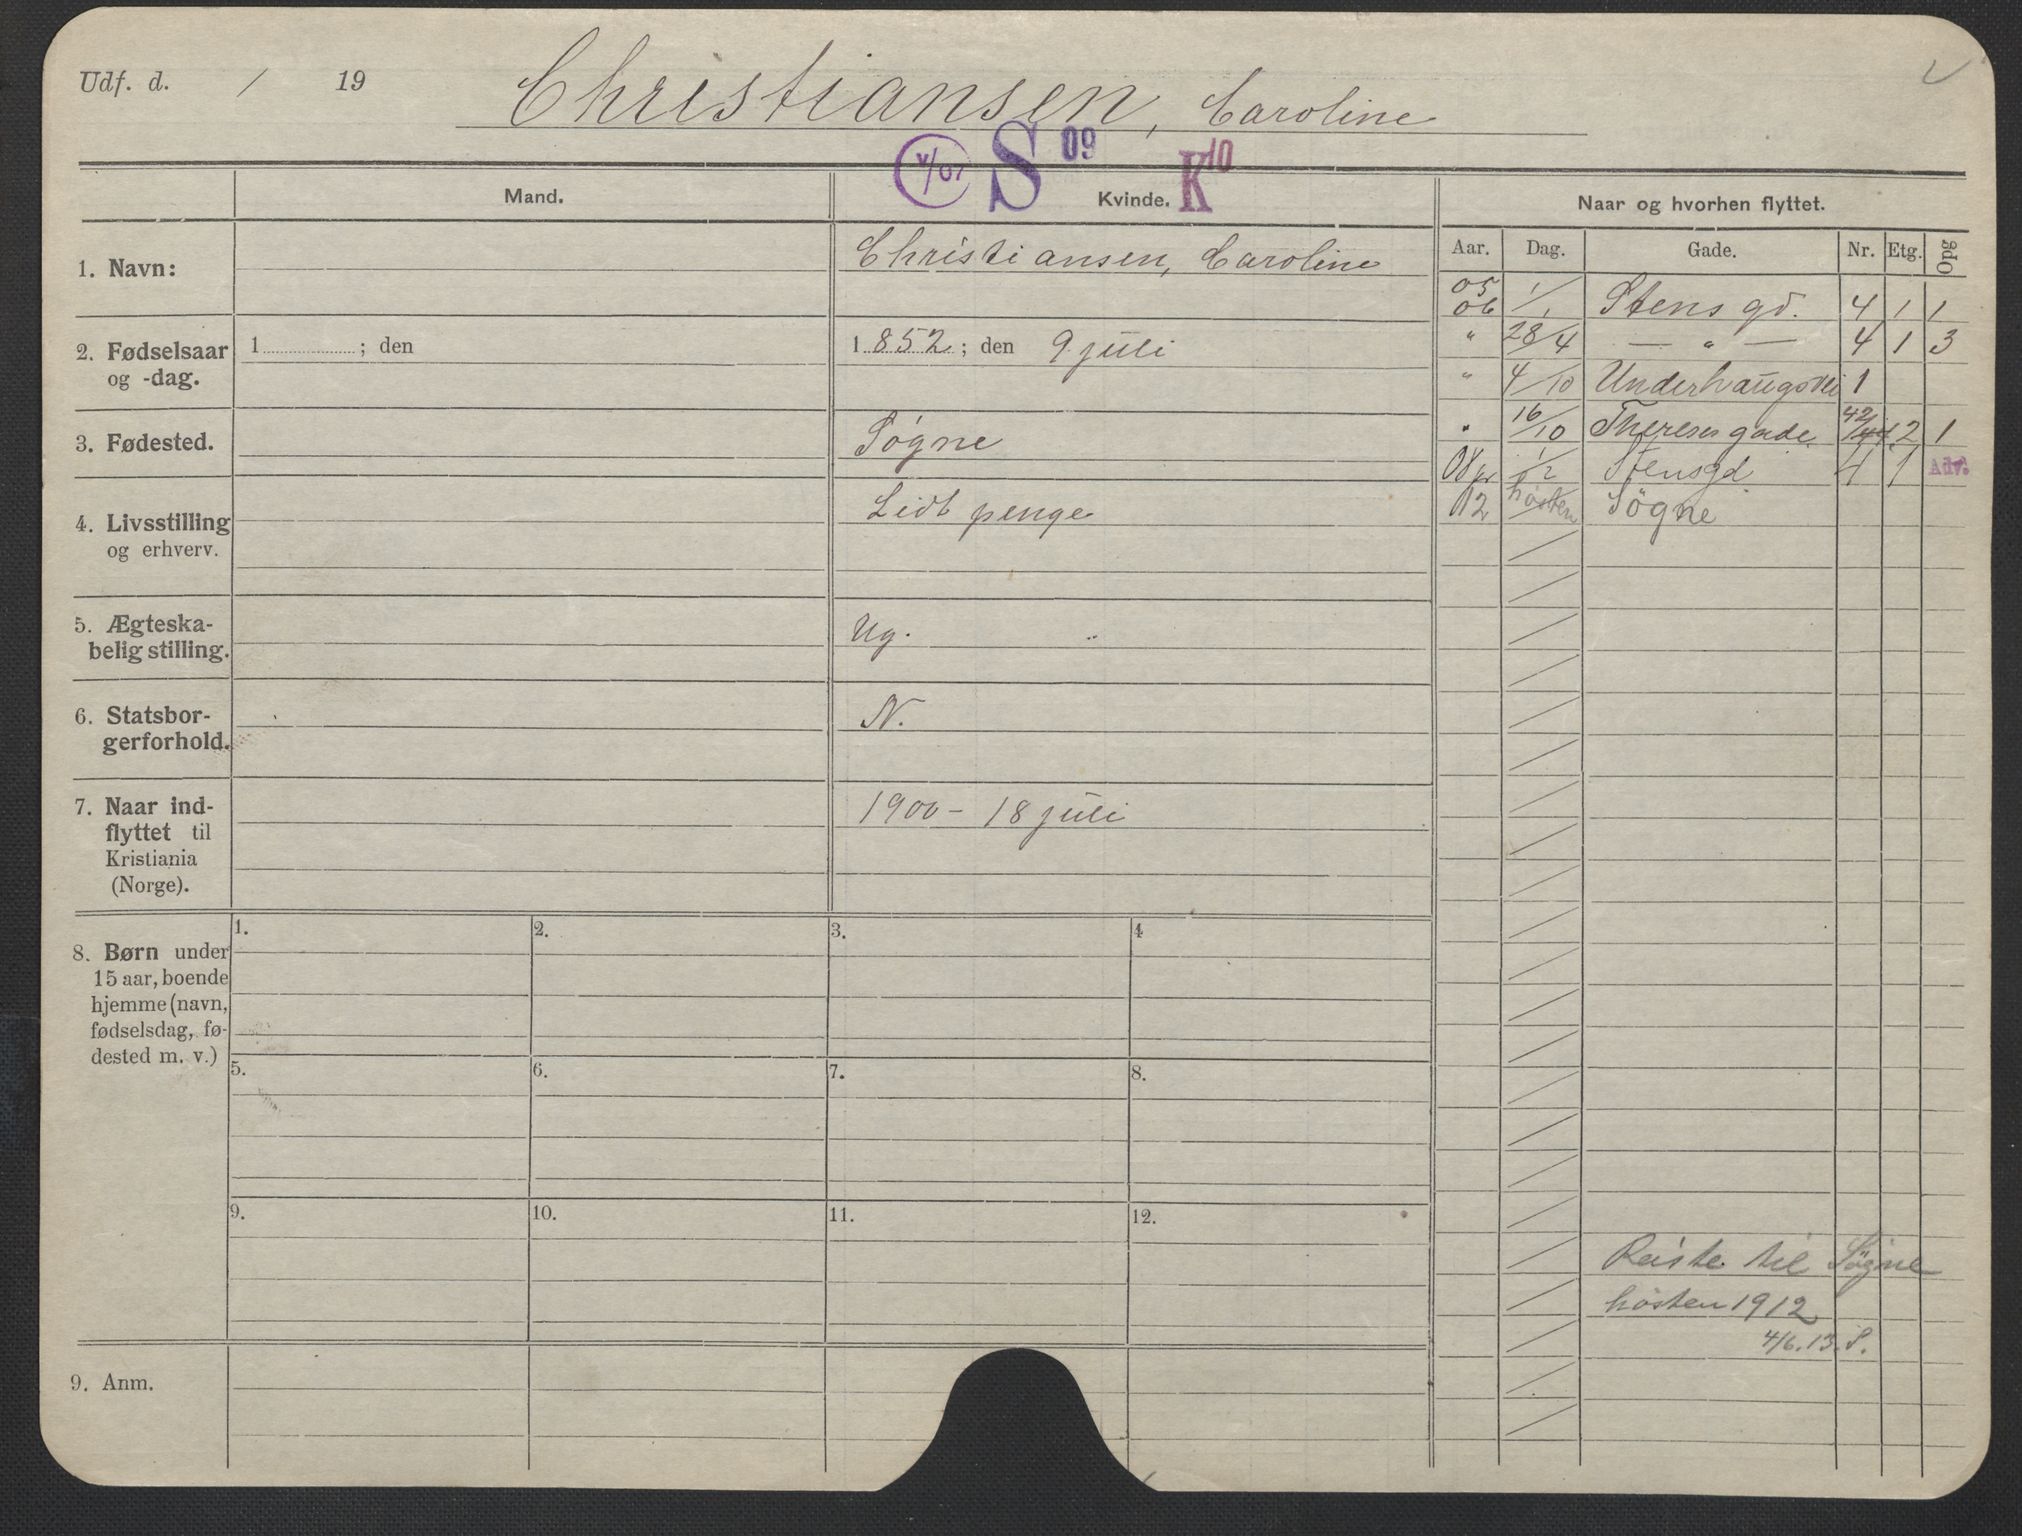 Udf. d. / 19 Christiansen, Caroline
V/07 S 09 K 10
Mand. Kvinde. Naar og hvorhen flyttet.
Aar. Dag. Gade. Nr. Etg. Opg
1. Navn: Christiansen, Caroline
05
06 1/1 Stensgd. 4 1 1
2. Fødselsaar 1 ; den 1852 ; den 9 juli
og -dag.
" 28/4 — " — 4 1 3
" 4/10 Underhaugsvei 1
3. Fødested. Søgne
" 16/10 Theresesgade 42/44 2 1
08 1/2 Stensgd 4 1 Adv.
4. Livsstilling Lidt penge
og erhverv.
12 høsten Søgne
5. Ægteska-
belig stilling. Ug. "
6. Statsbor- N.
gerforhold.
7. Naar ind- 1900 - 18 juli
flyttet til
Kristiania
(Norge).
8. Børn under
15 aar, boende
hjemme (navn,
fødselsdag, fø-
dested m. v.)
1. 2. 3. 4
5. 6. 7. 8.
9. 10. 11. 12.
Reiste til Søgne
høsten 1912
4/6.13. S.
9. Anm.